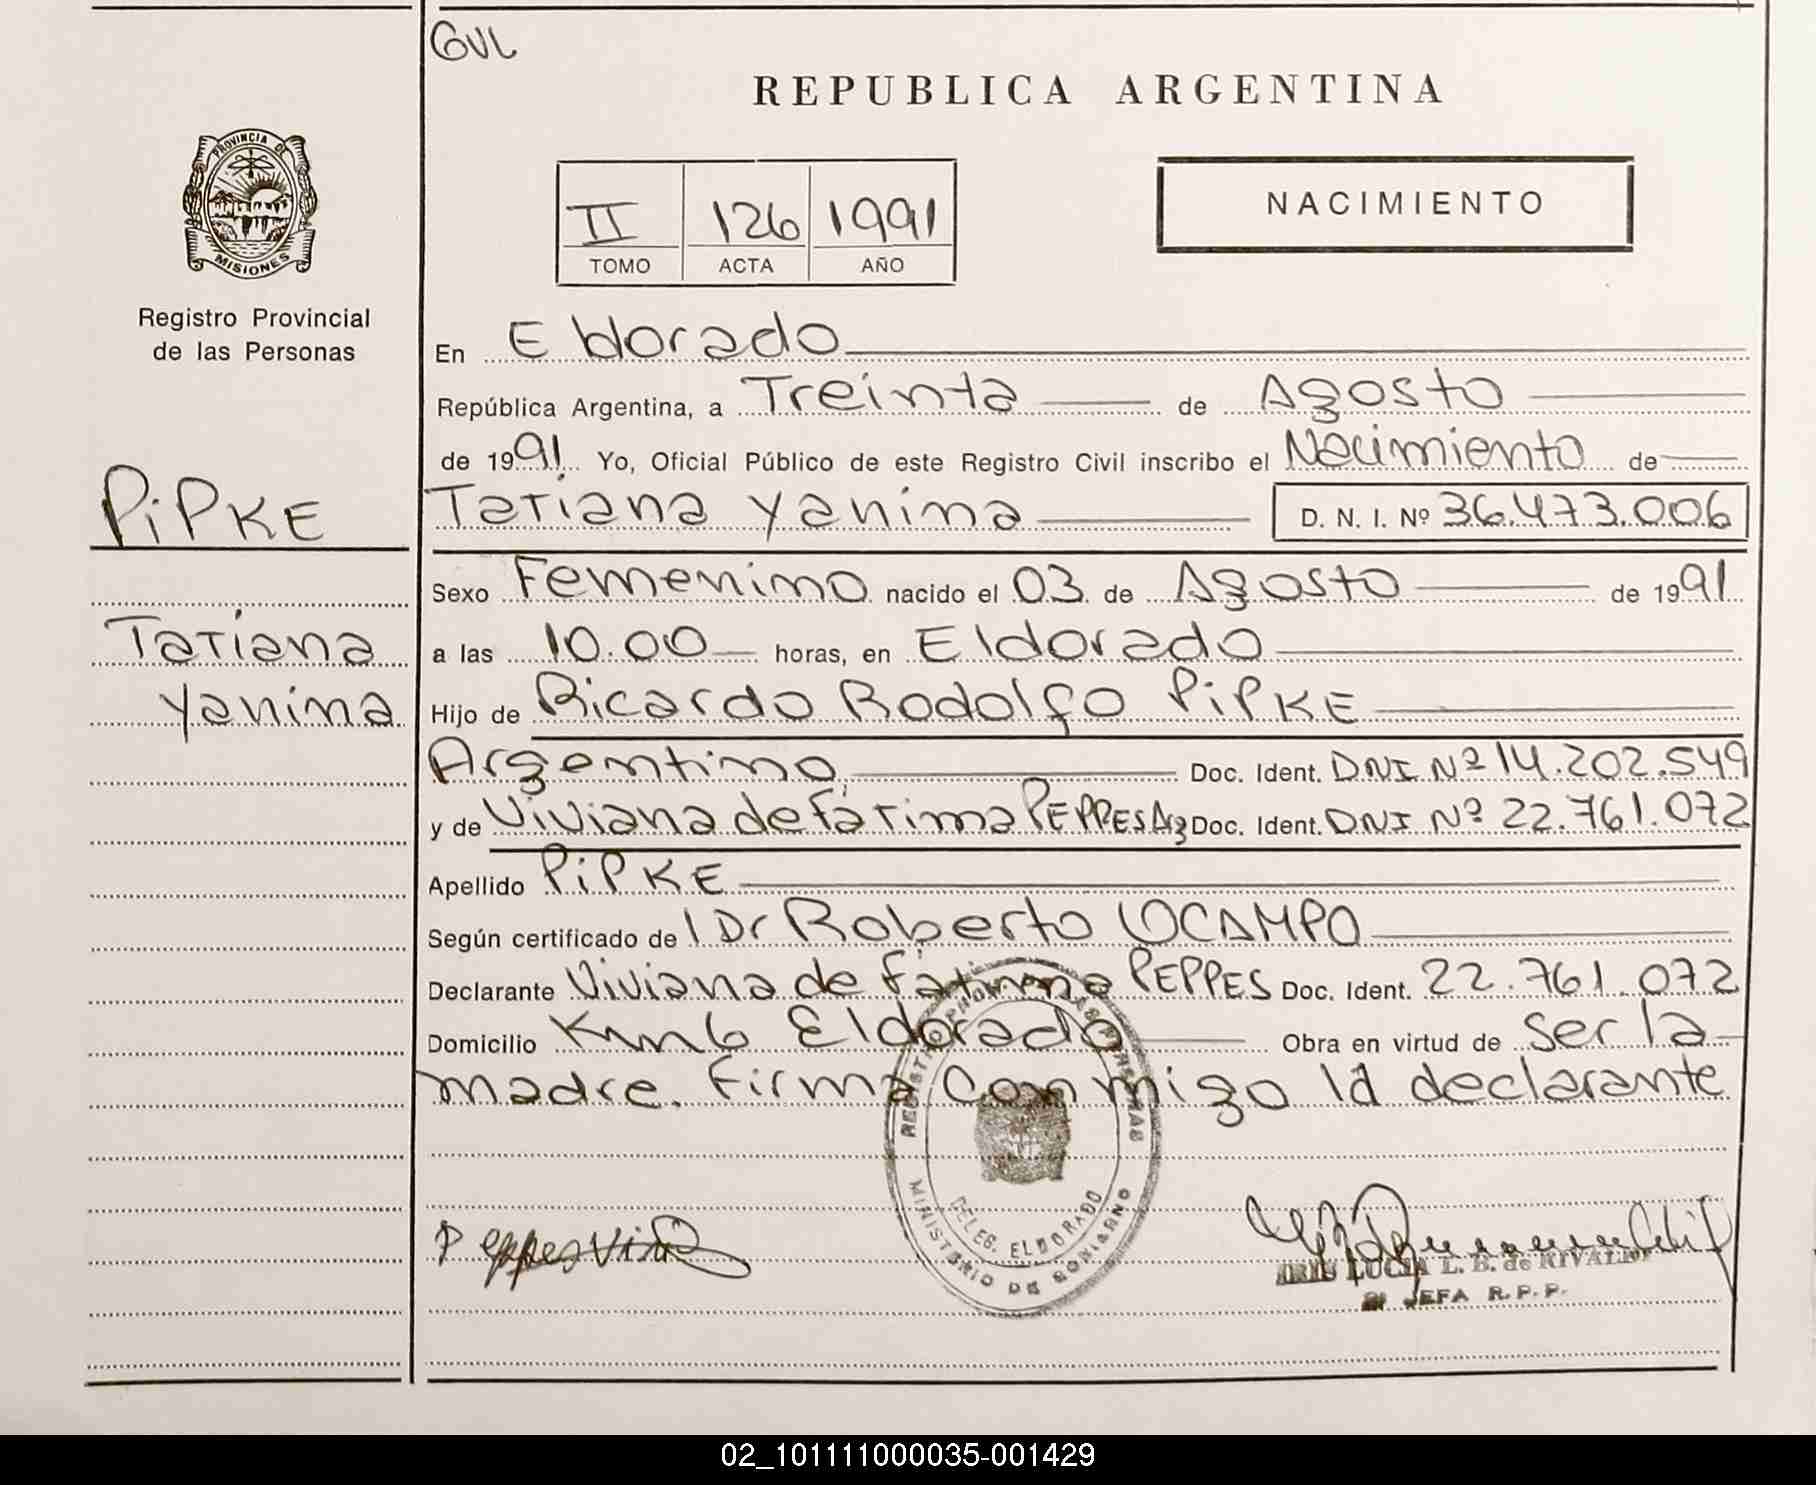 GVL
REPUBLICA ARGENTINA
PROVINCIA DE
MISIONES
Registro Provincial
de las Personas
II 126 1991
TOMO ACTA AÑO
NACIMIENTO
En Eldorado
República Argentina, a Treinta de Agosto
de 1991 Yo, Oficial Público de este Registro Civil inscribo el Nacimiento de
PiPKE
Tatiana Yanina D. N. I. Nº 36.473.006
Sexo Femenino nacido el 03 de Agosto de 1991
Tatiana
a las 10.00 horas, en Eldorado
Yanina
Hijo de Ricardo Rodolfo PiPKE
Argentino Doc. Ident. DNI Nº 14.202.549
y de Viviana de Fátima PEPPES Arg Doc. Ident. DNI Nº 22.761.072
Apellido PiPKE
Según certificado de l Dr Roberto OCAMPO
Declarante Viviana de Fátima PEPPES Doc. Ident. 22.761.072
Domicilio Km 6 Eldorado Obra en virtud de ser la
madre. Firma conmigo la declarante
DELEG. ELDORADO
MINISTERIO DE GOBIERNO
Peppes
LUCIA L. B. de RIVALD
JEFA R. P. P.
02_101111000035-001429